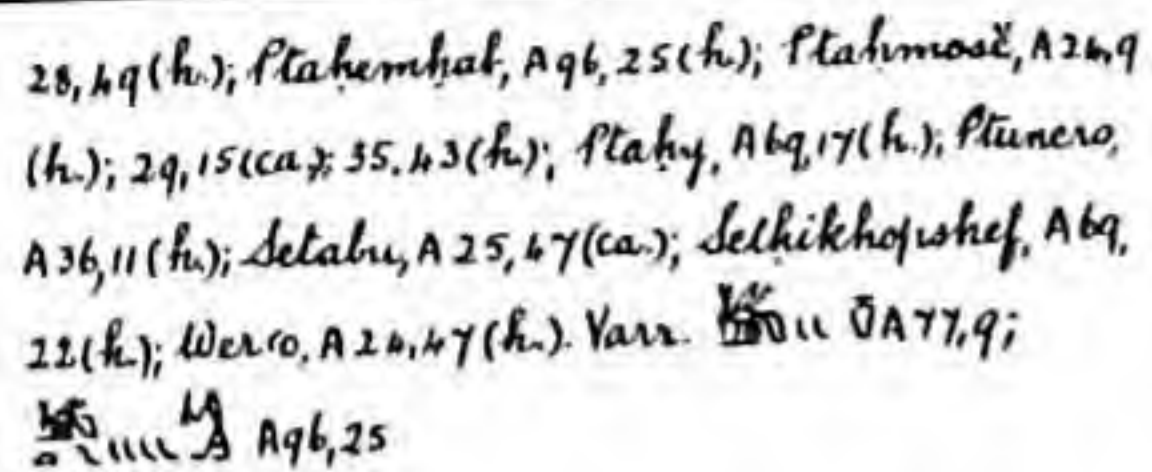 28,49(h.); Ptaḥemḥab, A96,25(h.); Ptaḥmosĕ, A24,9
(h.); 29,15(ca.); 35.43(h.); Ptaḥy, A69,17(h.); Ptunero,
A36,11(h.); Setabu, A25,47(ca.); Setḥikhopshef, A69,
22(h.); Werco, A24,47(h.). Varr. A77,9;
A96,25